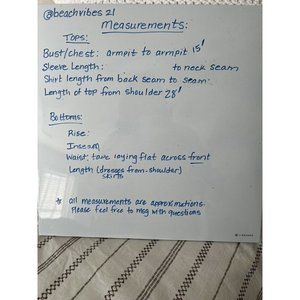 @beachvibes21
Measurements:
Tops:
Bust/chest: armpit to armpit 15"
Sleeve Length: to neck seam
Shirt length from back seam to seam:
Length of top from shoulder 28"
Bottoms:
Rise:
Inseam
Waist: tape laying flat across front
Length (dresses from shoulder)
skirts
* all measurements are approximations.
Please feel free to msg with questions